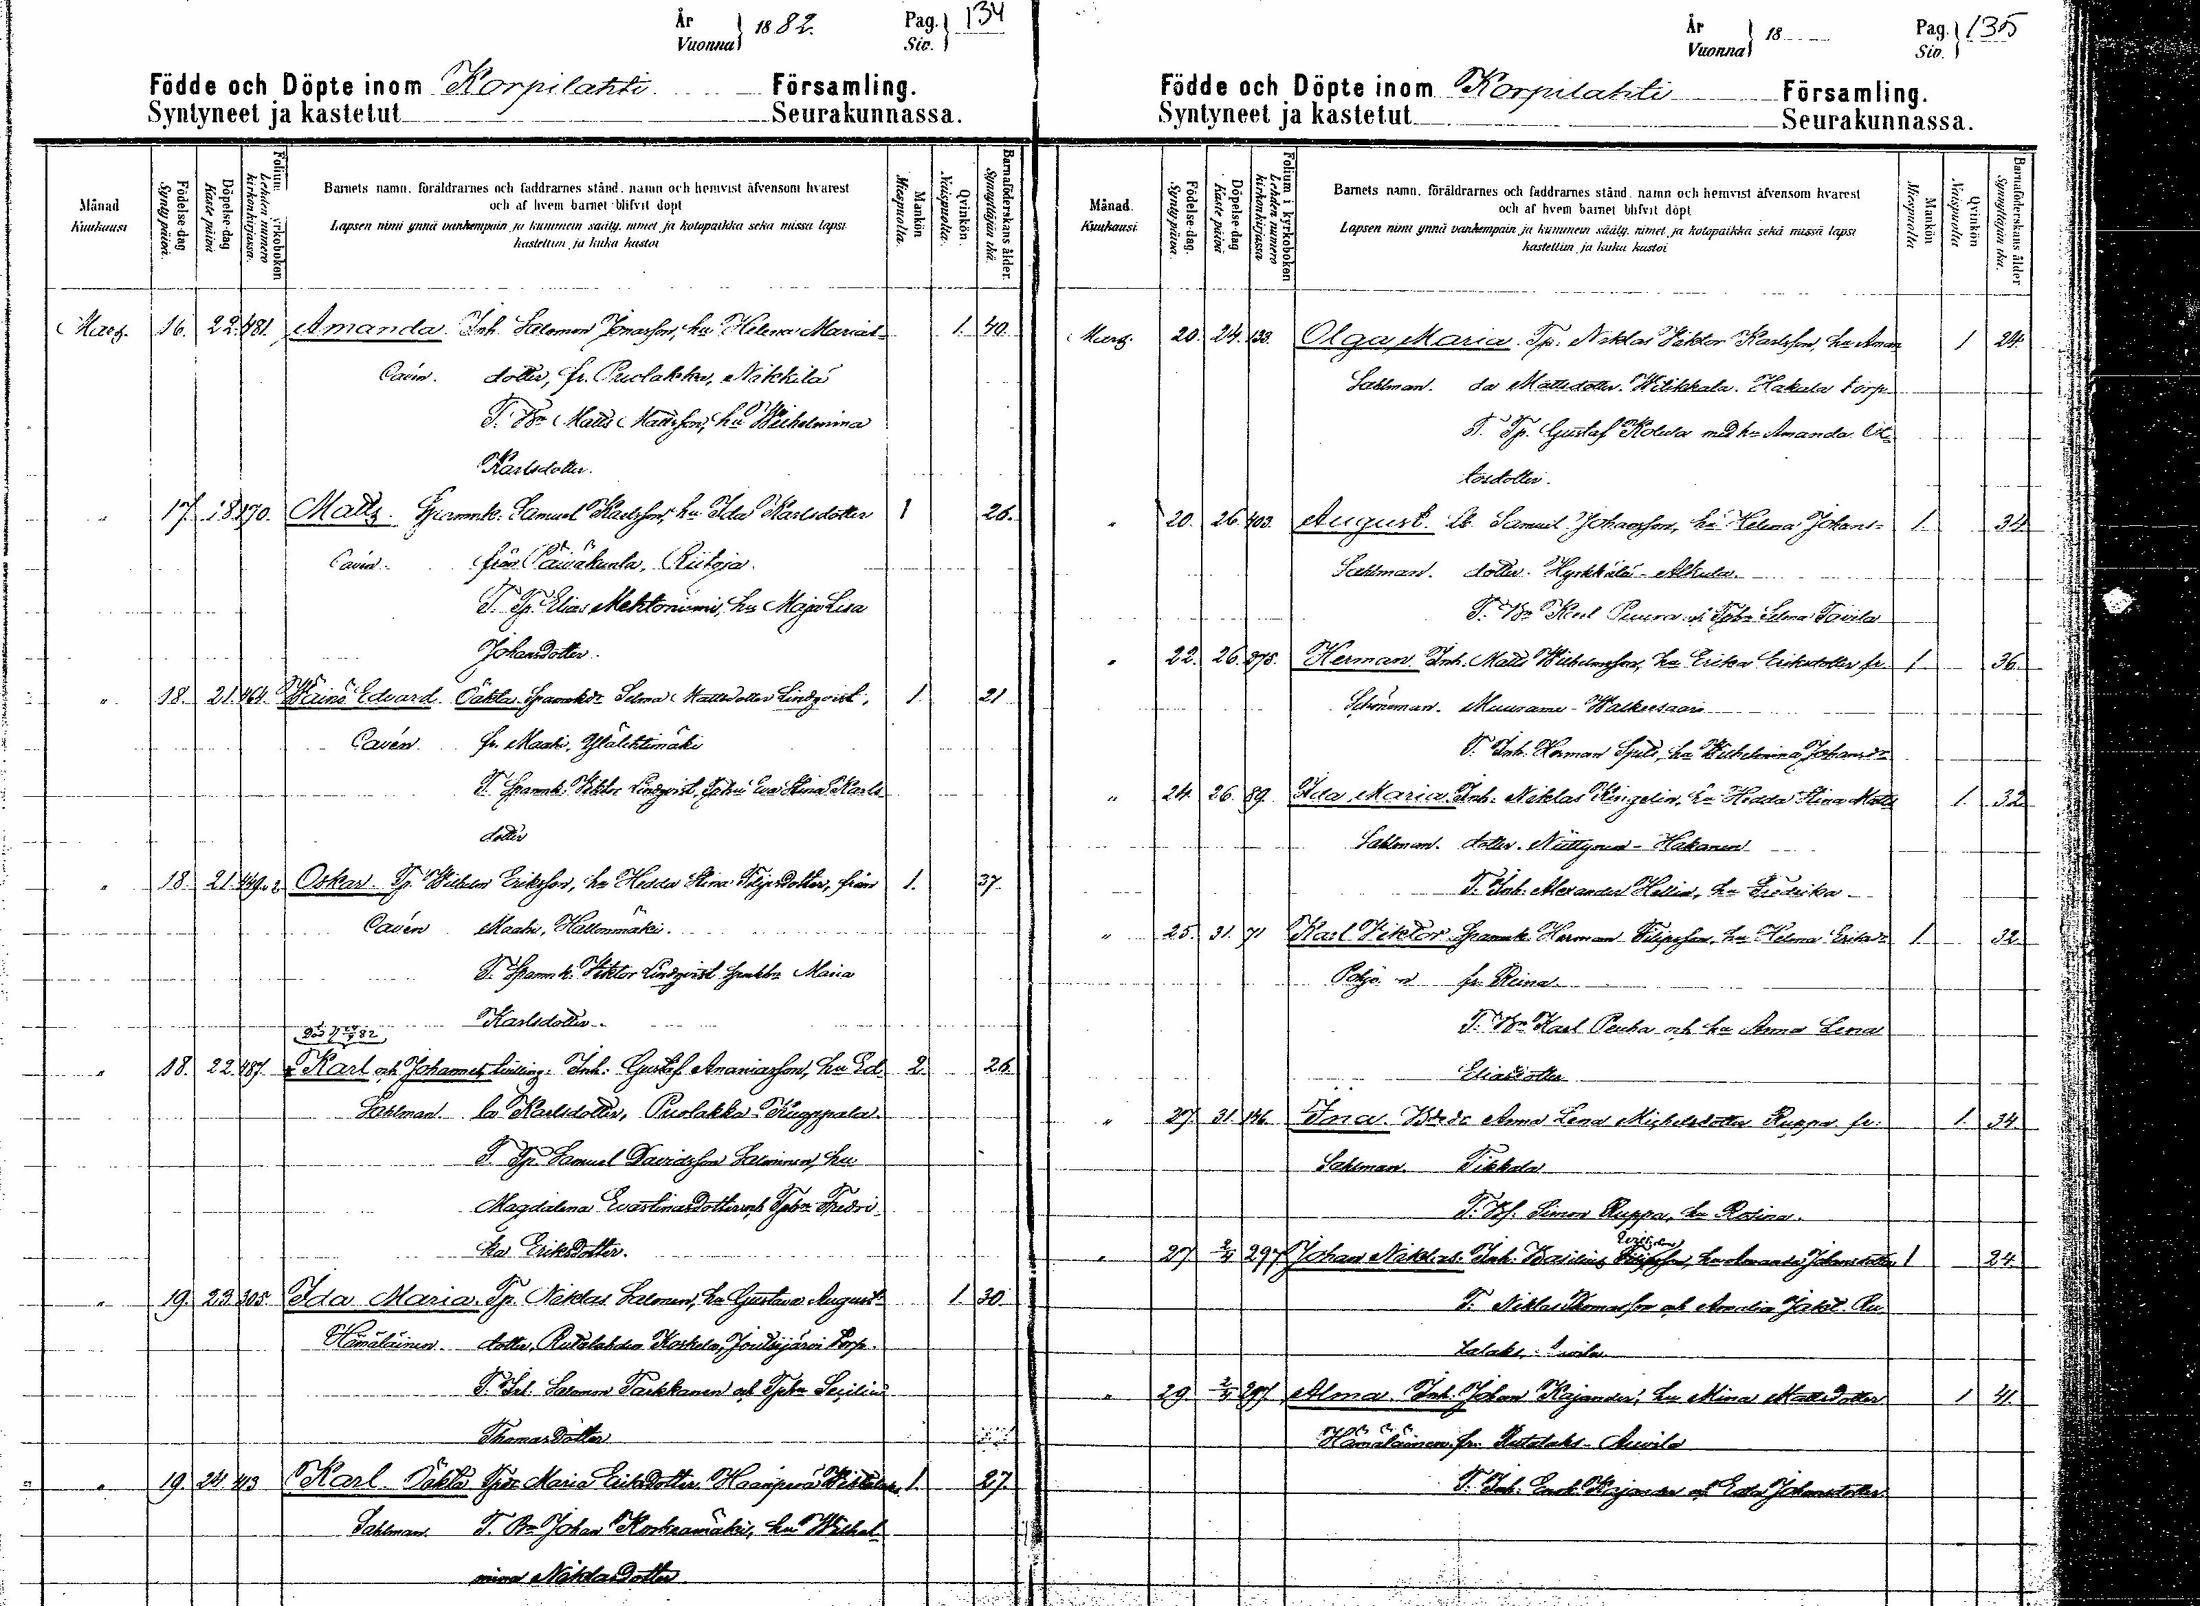 År
Vuonna } 1882.
Pag.
Siv. } 134
Födde och Döpte inom Korpilahti Församling.
Syntyneet ja kastetut Seurakunnassa.
Månad
Kuukausi
Födelse-dag
Synty päivä.
Döpelse-dag
Kaste päivä
Folium kyrkoboken
Lehden numero kirkonkirjassa.
Barnets namn, föräldrarnes och faddrarnes stånd, namn och hemvist äfvensom hvarest
och af hvem barnet blifvit döpt
Lapsen nimi ynnä vanhempain ja kummein sääty, nimet ja kotopaikka sekä missä lapsi
kastettiin ja kuka kastoi
Mankön
Miespuolia.
Qvinkön.
Naispuolia.
Barnaföderskans ålder.
Synnyttäjän ikä.
Mars. 16. 22. 481. Amanda. Inh. Salomon Jonasson, hu Helena Mariat- 1. 40.
Cavén. dotter, fr. Puolakka, Nikkilä
T. Bn Matts Mattsson, hu Wilhelmina
Karlsdotter.
" 17. 18. 170. Matts. Spannk. Samuel Karlsson, hu Ida Karlsdotter 1 26.
Cavén. från Päiväkunta, Riitoja.
T. Tp. Elias Mehtoniemi, hu Maja Lisa
Johansdotter.
" 18. 21. 464. Wäinö Edvard. Oäkta. Spannkdr Selma Mattsdotter Lindqvist, 1. 21
Cavén. fr. Maahi, Ylälehtimäki
T. Spannk. Viktor Lindqvist, Eva Stina Karls
dotter
" 18. 21. 449.2 Oskar. Tp. Wilhelm Eriksson, hu Hedda Stina Filipsdotter, från 1. 37.
Cavén Maahi, Hallonmäki.
T. Spannk. Viktor Lindqvist Maria
Karlsdotter.
" 18. 22. 487. Karl och Johannes, tvilling. Inh. Gustaf Ananiasson, hu Ed- 2. 26.
Sahlman. la Karlsdotter, Puolakka Kuggpala.
T. Tp. Samuel Davidsson Salminen, hu
Magdalena Evastinasdotter och Tpbn Fredri-
ka Eriksdotter.
" 19. 23. 305. Ida Maria. Tp. Niklas Salonen, hu Gustava August- 1. 30.
Hämäläinen. dotter, Rutalahden Koskela, Joutsijärvi torp.
T. Inh. Salomon Tarkkanen och Tpbn Seçilia
Thomasdotter
" 19. 24. 413 Karl. Oäkta Tpdr Maria Eriksdotter. Haanperä 1. 27.
Sahlman. T. Bn Johan Koskenmäki, hu Wilhel-
mina Niklasdotter.
År
Vuonna } 18
Pag.
Siv. } 135
Födde och Döpte inom Korpilahti Församling.
Syntyneet ja kastetut Seurakunnassa.
Månad.
Kuukausi
Födelse-dag.
Synty päivä.
Döpelse-dag
Kaste päivä
Folium i kyrkoboken
Lehden numero kirkonkirjassa
Barnets namn, föräldrarnes och faddrarnes stånd, namn och hemvist äfvensom hvarest
och af hvem barnet blifvit döpt
Lapsen nimi ynnä vanhempain ja kummein sääty, nimet ja kotopaikka sekä missä lapsi
kastettiin ja kuka kastoi
Mankön
Miespuolia
Qvinkön
Naispuolia
Barnaföderskans ålder
Synnyttäjän ikä.
Mars. 20. 24. 133. Olga Maria. Tp. Niklas Viktor Karlsson, hu Aman 1 24.
Sahlman. da Mattsdotter. Witikkala. Hakala torp
T. Tp. Gustaf Kolua med hu Amanda Ot-
tosdotter.
" 20. 26. 403. August. Lb. Samuel Johansson, hu Helena Johans- 1. 34
Sahlman. dotter. Hyrkkälä-Alkula.
T. Bn Karl Puura o. Tpbn Selma Tavila
" 22. 26. 275. Herman. Inh. Matts Wilhelmsson, hu Erika Eriksdotter fr. 1. 36.
Schöneman. Muurame-Walkeesaari
T. Inh. Herman Sjuls, hu Wilhelmina Johansdr
" 24. 26. 89. Ida Maria. Inh. Niklas Ringelin, hu Hedda Stina Matts 1. 32
Sahlman. dotter. Nüttynen-Hakanen
T. Inh. Alexander Hellin, hu Fredrika
" 25. 31. 71 Karl Viktor Spannk. Herman Filipsson, hu Helena Eriksdr 1. 32.
fr. Reina.
T. Bn Karl Penha och hu Anna Lena
Eliasdotter
" 27. 31. 146. Ina. Anna Lena Michelsdotter Ruppa fr. 1. 34.
Sahlman. Tikkala
T. Bf. Simon Ruppa, hu Rosina.
" 27 2/4 297 Johan Niklas. Inh. Basilius hu Amanda Johansdotter 1 24
T. Niklas Thomasson och Amalia Jakd. Ru-
talaks.
" 29. 2/4 297 Alma. Inh. Johan Kajander, hu Mina Mattsdotter 1 41.
Hämäläinen. fr. Rutalaks-Auvila
T. Inh. Enok Kajander och Edla Johansdotter